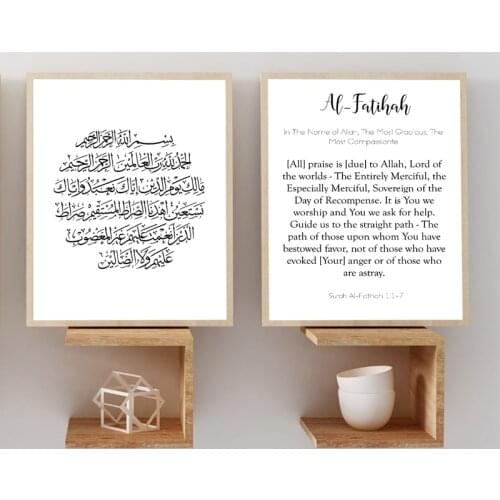 بِسْمِ اللهِ الرَّحْمٰنِ الرَّحِيمِ
الْحَمْدُ لِلّٰهِ رَبِّ الْعَالَمِينَ الرَّحْمٰنِ الرَّحِيمِ
مَالِكِ يَوْمِ الدِّينِ إِيَّاكَ نَعْبُدُ وَإِيَّاكَ
نَسْتَعِينُ اهْدِنَا الصِّرَاطَ الْمُسْتَقِيمَ صِرَاطَ
الَّذِينَ أَنْعَمْتَ عَلَيْهِمْ غَيْرِ الْمَغْضُوبِ
عَلَيْهِمْ وَلَا الضَّالِّينَ
Al-Fatihah
In The Name of Allah, The Most Gracious, The
Most Compassionate
[All] praise is [due] to Allah, Lord of
the worlds - The Entirely Merciful, the
Especially Merciful, Sovereign of the
Day of Recompense. It is You we
worship and You we ask for help.
Guide us to the straight path - The
path of those upon whom You have
bestowed favor, not of those who have
evoked [Your] anger or of those who
are astray.
Surah Al-Fatihah 1:1-7